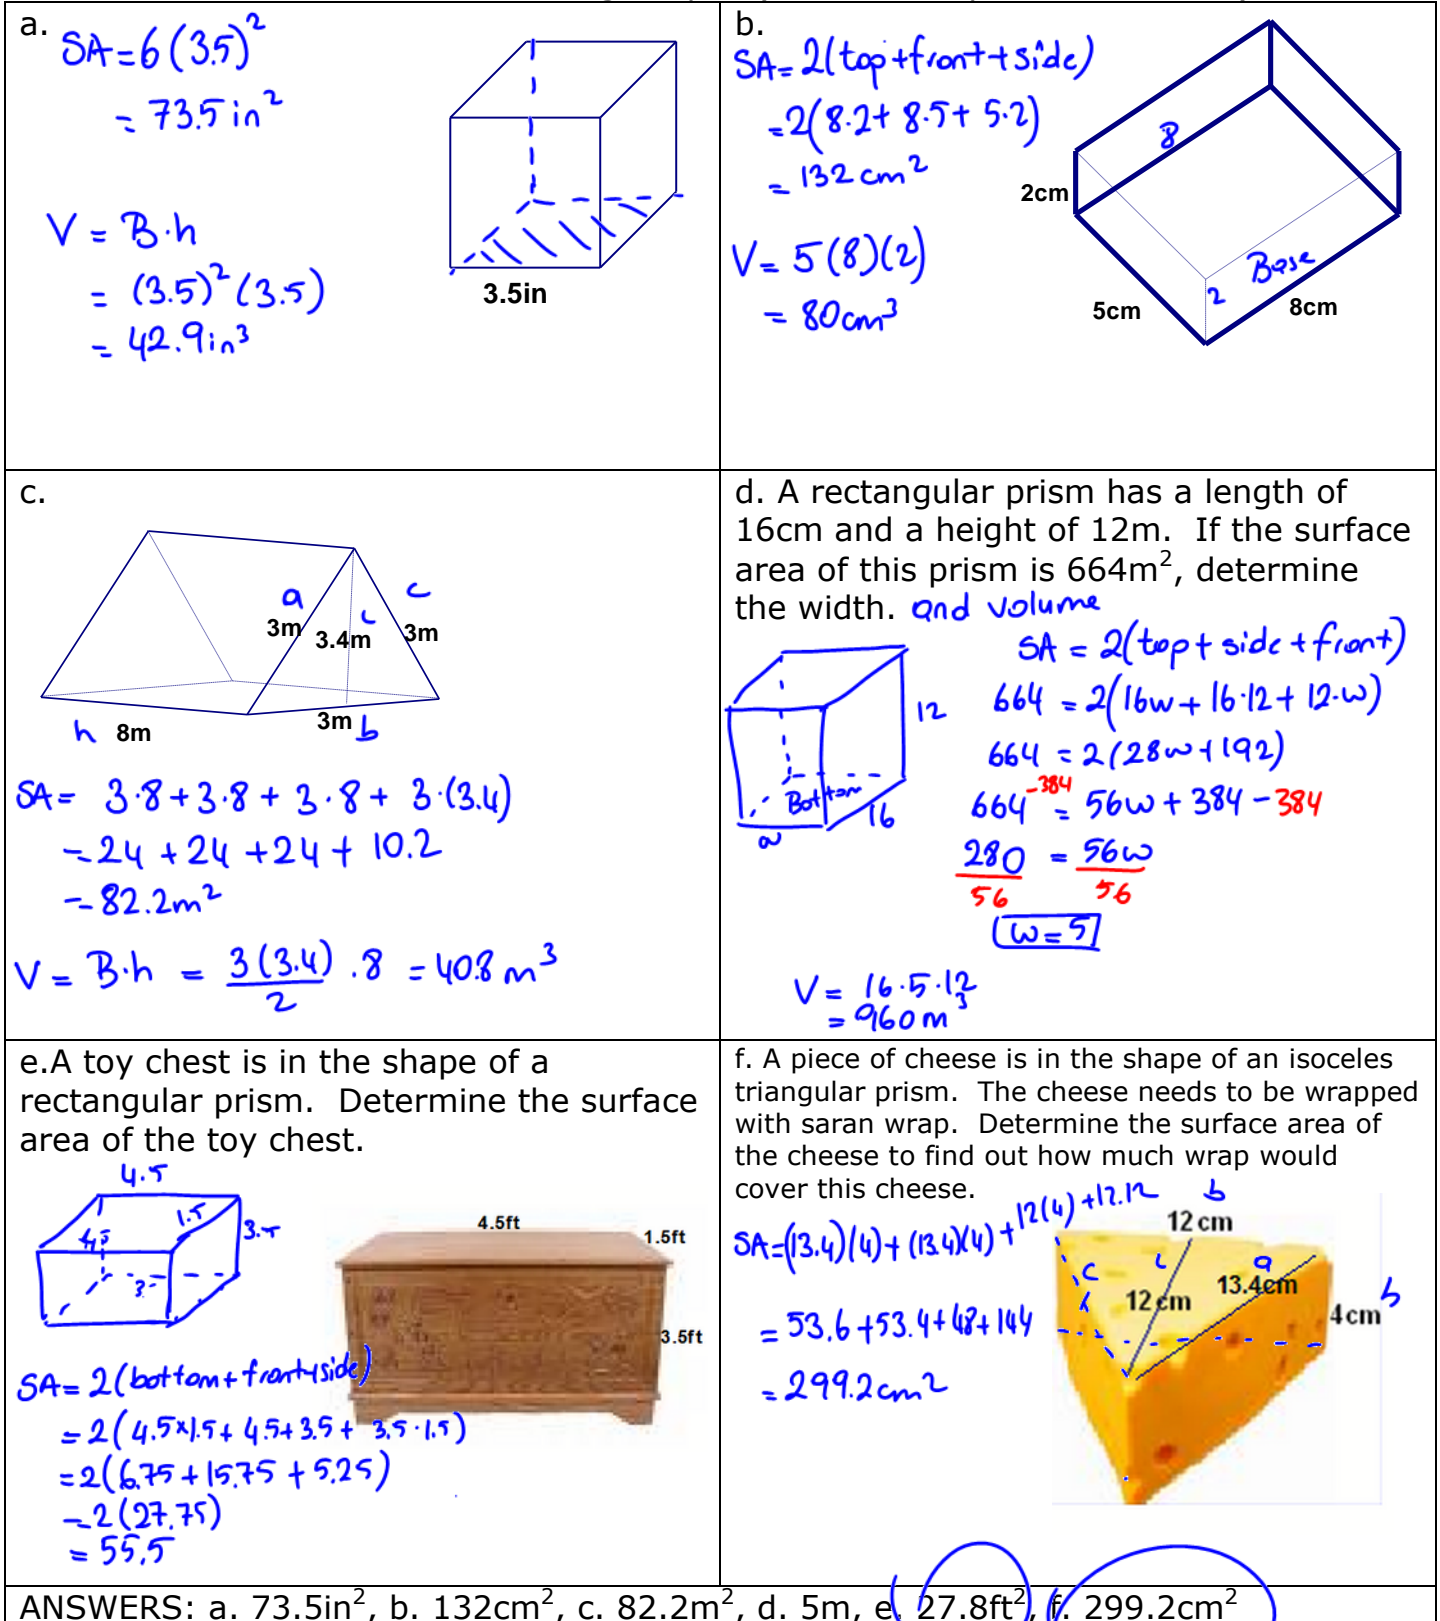 a.
SA = 6(3.5)²
= 73.5 in²
V = B·h
= (3.5)²(3.5)
= 42.9in³
3.5in
b.
SA = 2(top+front+side)
= 2(8·2+ 8·5+ 5·2)
= 132 cm²
V = 5(8)(2)
= 80cm³
8
2cm
Base
2
5cm
8cm
c.
a
c
3m
l
3.4m
3m
h
8m
3m
b
SA = 3·8+3·8+ 3·8+ 3·(3.4)
= 24 +24 +24+ 10.2
= 82.2m²
V = B·h = 3(3.4)/2 .8 = 40.8 m³
d. A rectangular prism has a length of
16cm and a height of 12m. If the surface
area of this prism is 664m², determine
the width. and volume
SA = 2(top+ side+front)
12
664 = 2(16w+ 16·12+ 12·w)
664 = 2(28w+192)
Bottom
16
w
664 -384 = 56w + 384 - 384
280 = 56w
56 56
w=5
V = 16·5·12
= 960m³
e.A toy chest is in the shape of a
rectangular prism. Determine the surface
area of the toy chest.
4.5
1.5
3.5
4.5
3.
4.5ft
1.5ft
3.5ft
SA= 2(bottom+front+side)
= 2(4.5×1.5+ 4.5+3.5+ 3.5·1.5)
= 2(6.75+15.75 + 5.25)
= 2(27.75)
= 55.5
f. A piece of cheese is in the shape of an isoceles
triangular prism. The cheese needs to be wrapped
with saran wrap. Determine the surface area of
the cheese to find out how much wrap would
cover this cheese.
SA=(13.4)(4)+ (13.4)(4)+ 12(4)+12.12
b
12 cm
c
l
a
h
12 cm
13.4cm
4cm
b
= 53.6+53.4+48+144
= 299.2cm²
ANSWERS: a. 73.5in², b. 132cm², c. 82.2m², d. 5m, e. 27.8ft², f. 299.2cm²